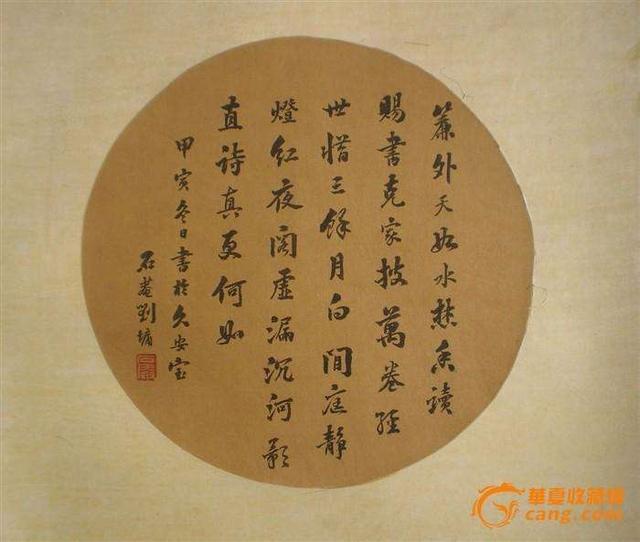 簾外天如水焚香讀
賜書克家披萬卷經
世惜三餘月白閒庭靜
燈紅夜閣虛漏沉河影
直詩真更何如
甲寅冬日書於久安室
石菴劉墉
華夏收藏網
cang.com